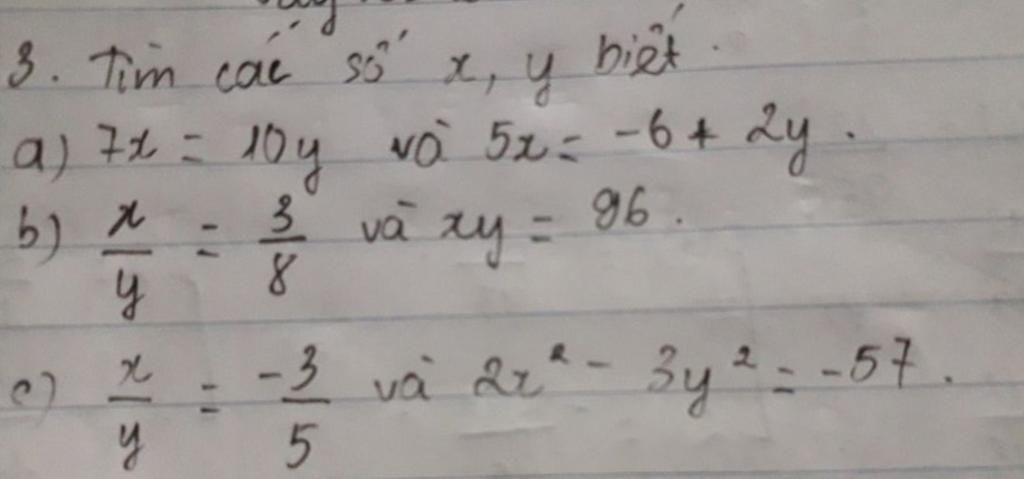 3. Tìm các số x, y biết.
a) 7x = 10y và 5x = -6 + 2y.
b) x/y = 3/8 và xy = 96.
c) x/y = -3/5 và 2x² - 3y² = -57.